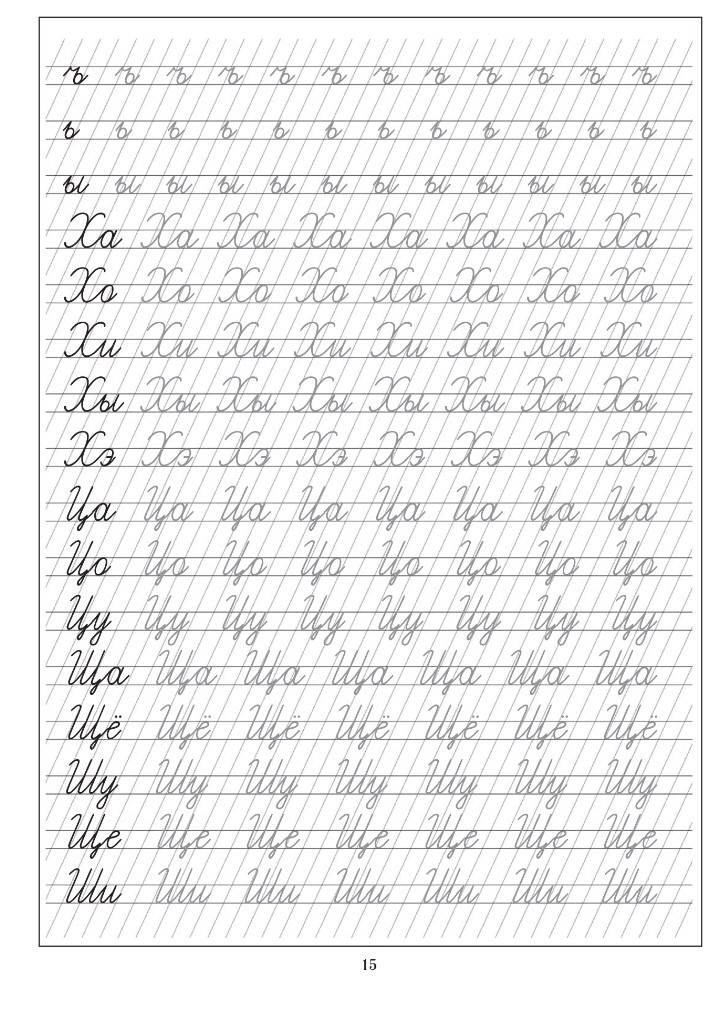 ъ ъ ъ ъ ъ ъ ъ ъ ъ ъ ъ ъ
ь ь ь ь ь ь ь ь ь ь ь ь
ы ы ы ы ы ы ы ы ы ы ы ы
Ха Ха Ха Ха Ха Ха Ха Ха
Хо Хо Хо Хо Хо Хо Хо Хо
Хи Хи Хи Хи Хи Хи Хи Хи
Хы Хы Хы Хы Хы Хы Хы Хы
Хэ Хэ Хэ Хэ Хэ Хэ Хэ Хэ
Ца Ца Ца Ца Ца Ца Ца Ца
Цо Цо Цо Цо Цо Цо Цо Цо
Цу Цу Цу Цу Цу Цу Цу Цу
Ща Ща Ща Ща Ща Ща Ща
Щё Щё Щё Щё Щё Щё Щё
Шу Шу Шу Шу Шу Шу Шу
Ще Ще Ще Ще Ще Ще Ще
Ши Ши Ши Ши Ши Ши Ши
15